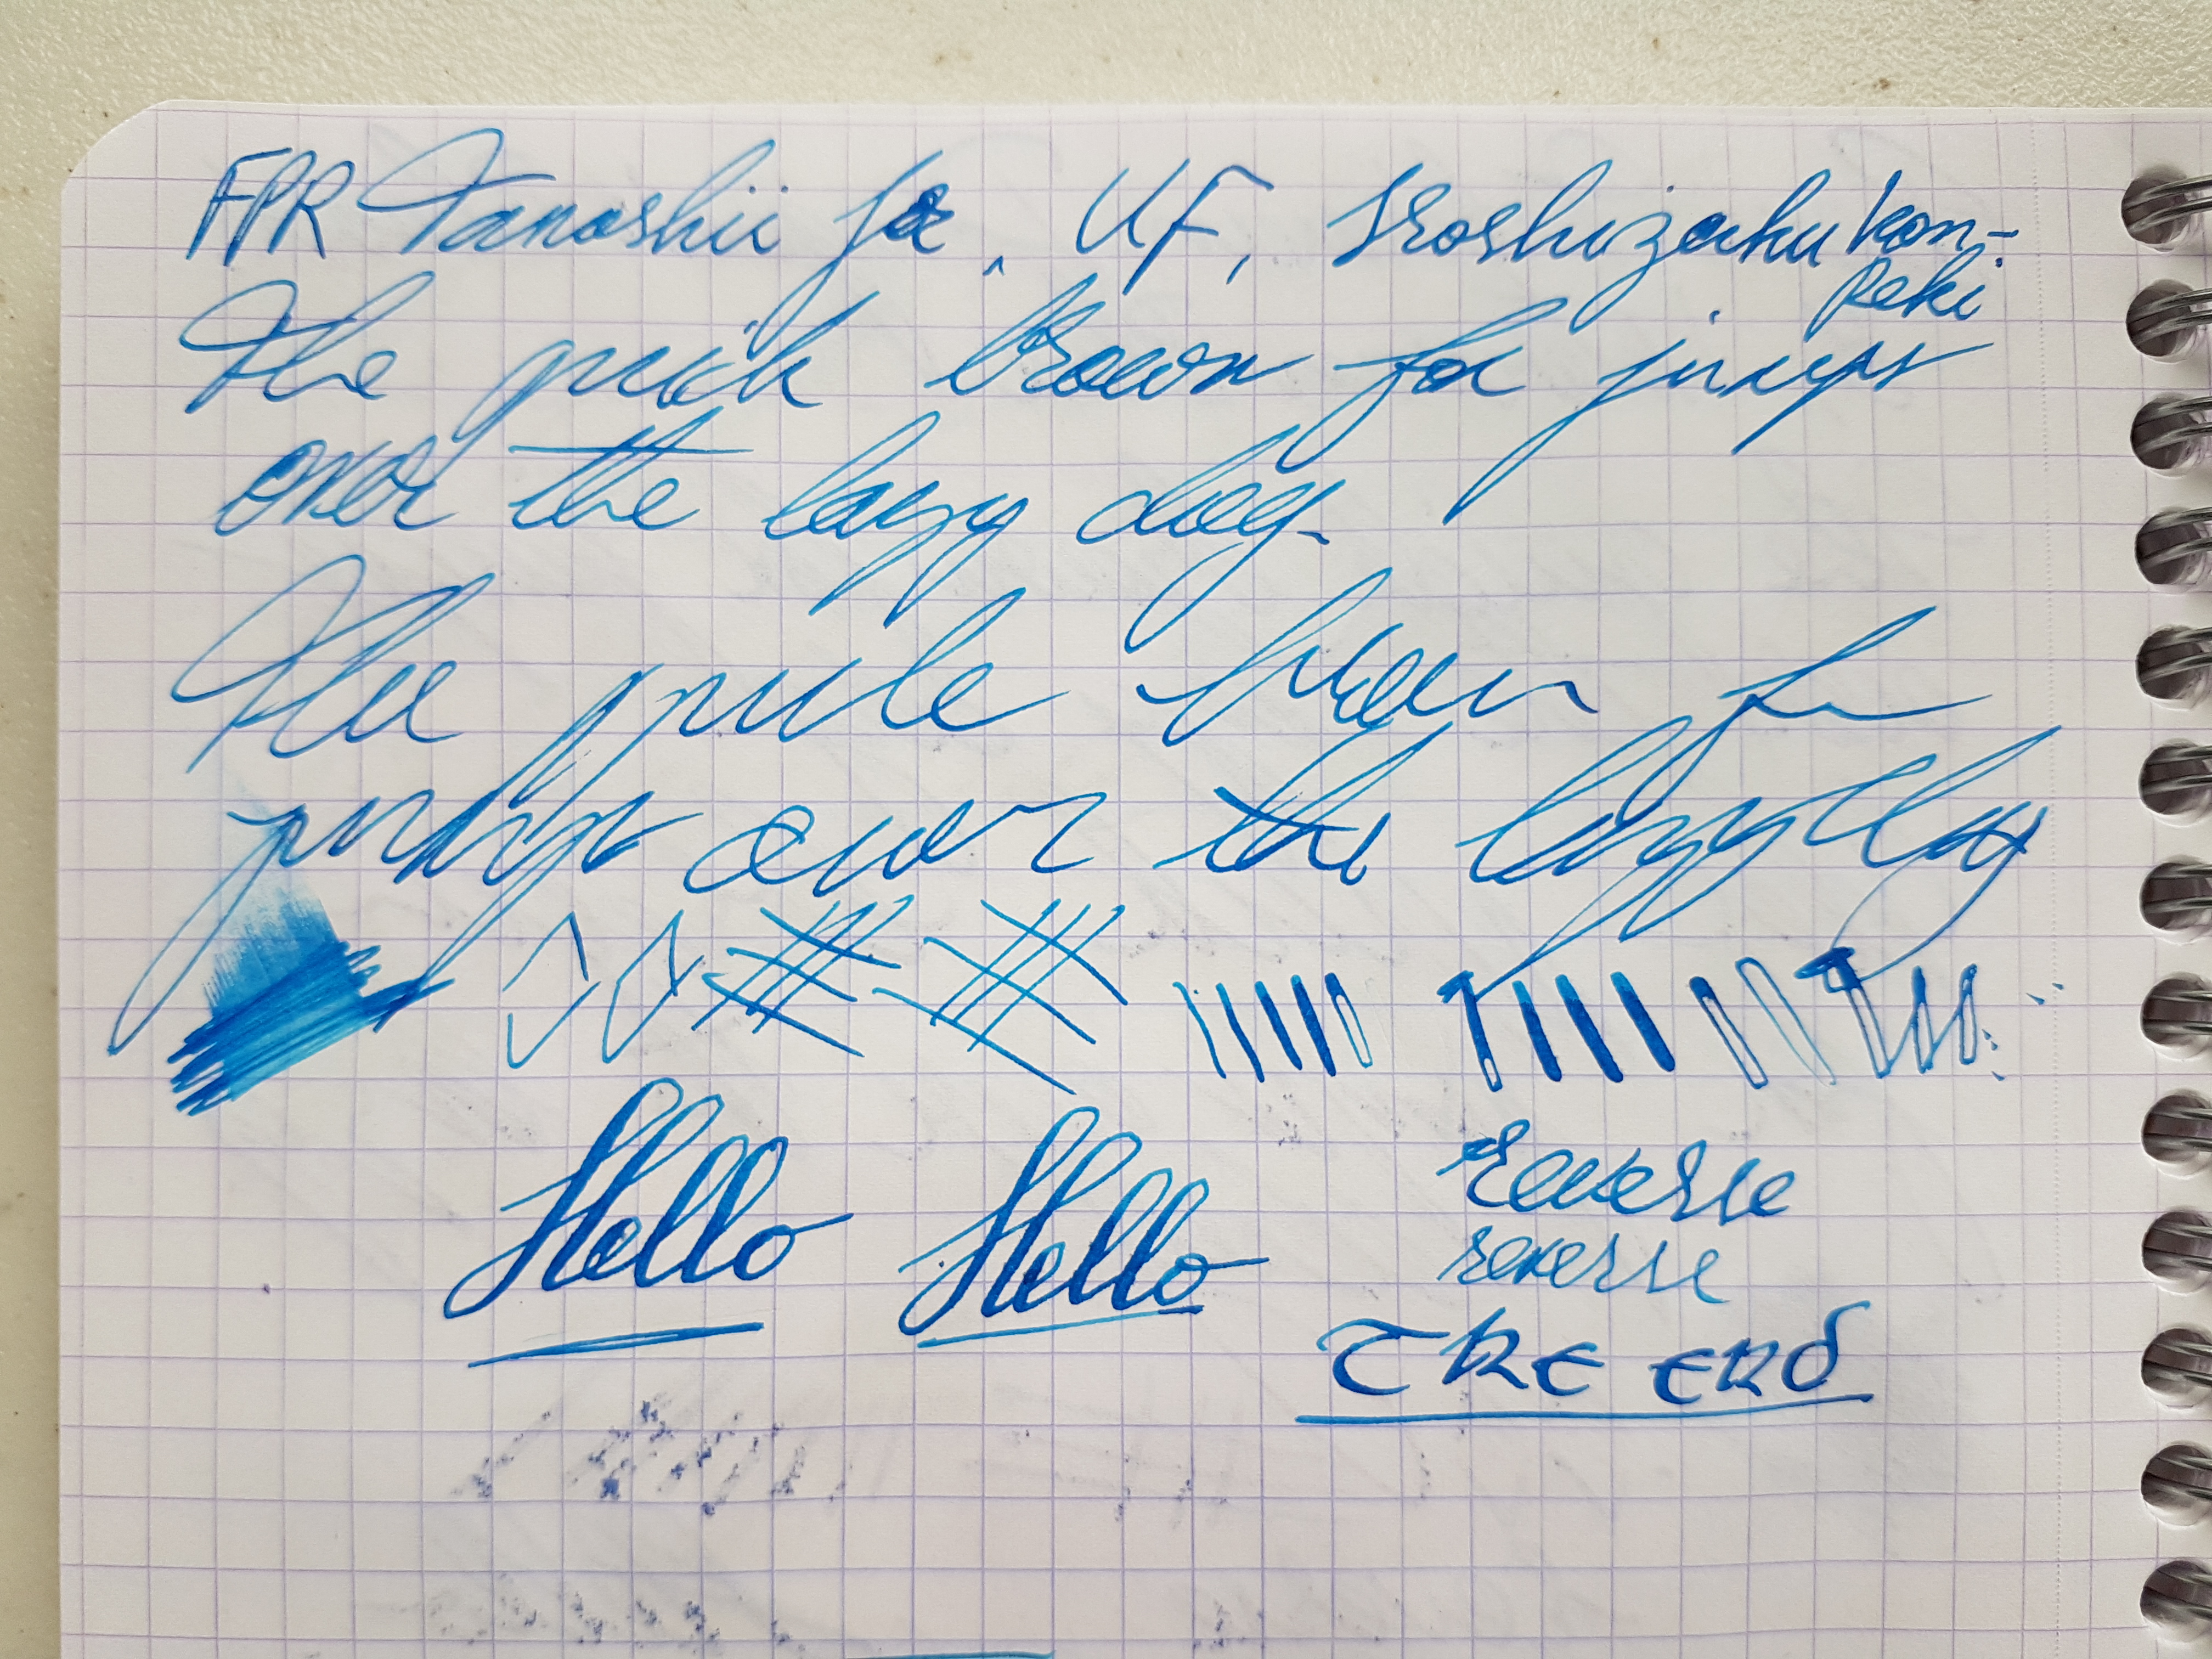 FPR Tanoshii , UF, Iroshizuku kon-
peki
The quick brown fox jumps
over the lazy dog.
The quick brown fox
jumps over the lazy dog
Hello Hello reverse
reverse
THE END